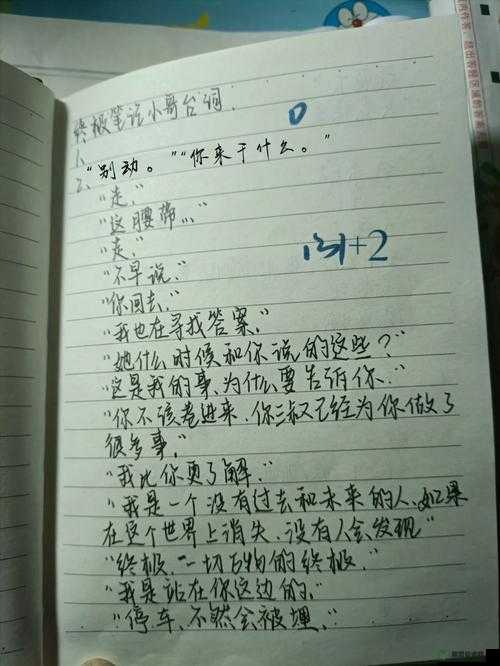 终极笔记小哥台词.
1、
2、"别动。" "你来干什么。"
"走."
"这腰带..."
"走."
"不早说."
"你回去."
"我也在寻找答案."
"她什么时候和你说的这些？"
"这是我的事、为什么要告诉你."
"你不该卷进来、你三叔又已经为你做了
很多事."
"我比你更了解."
"我是一个没有过去和未来的人、如果
在这个世界上消失、没有人会发现"
"终极、一切万物的终极."
"我是站在你这边的."
"停车、不然会被埋."
0
+2